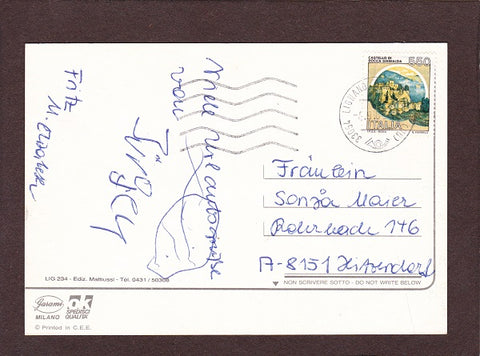 Viele Urlaubsgrüße
von
Fritz
CASTELLO DI
ROCCA SINIBALDA
550
ITALIA
Fräulein
Sonja Maier
Rohrbach 146
A-8151 Hitzendorf
LIG 234 - Ediz. Mattiussi - Tel. 0431 / 50308
NON SCRIVERE SOTTO - DO NOT WRITE BELOW
Garami
MILANO
OK
SPEDISCI
QUALITA'
© Printed in C.E.E.